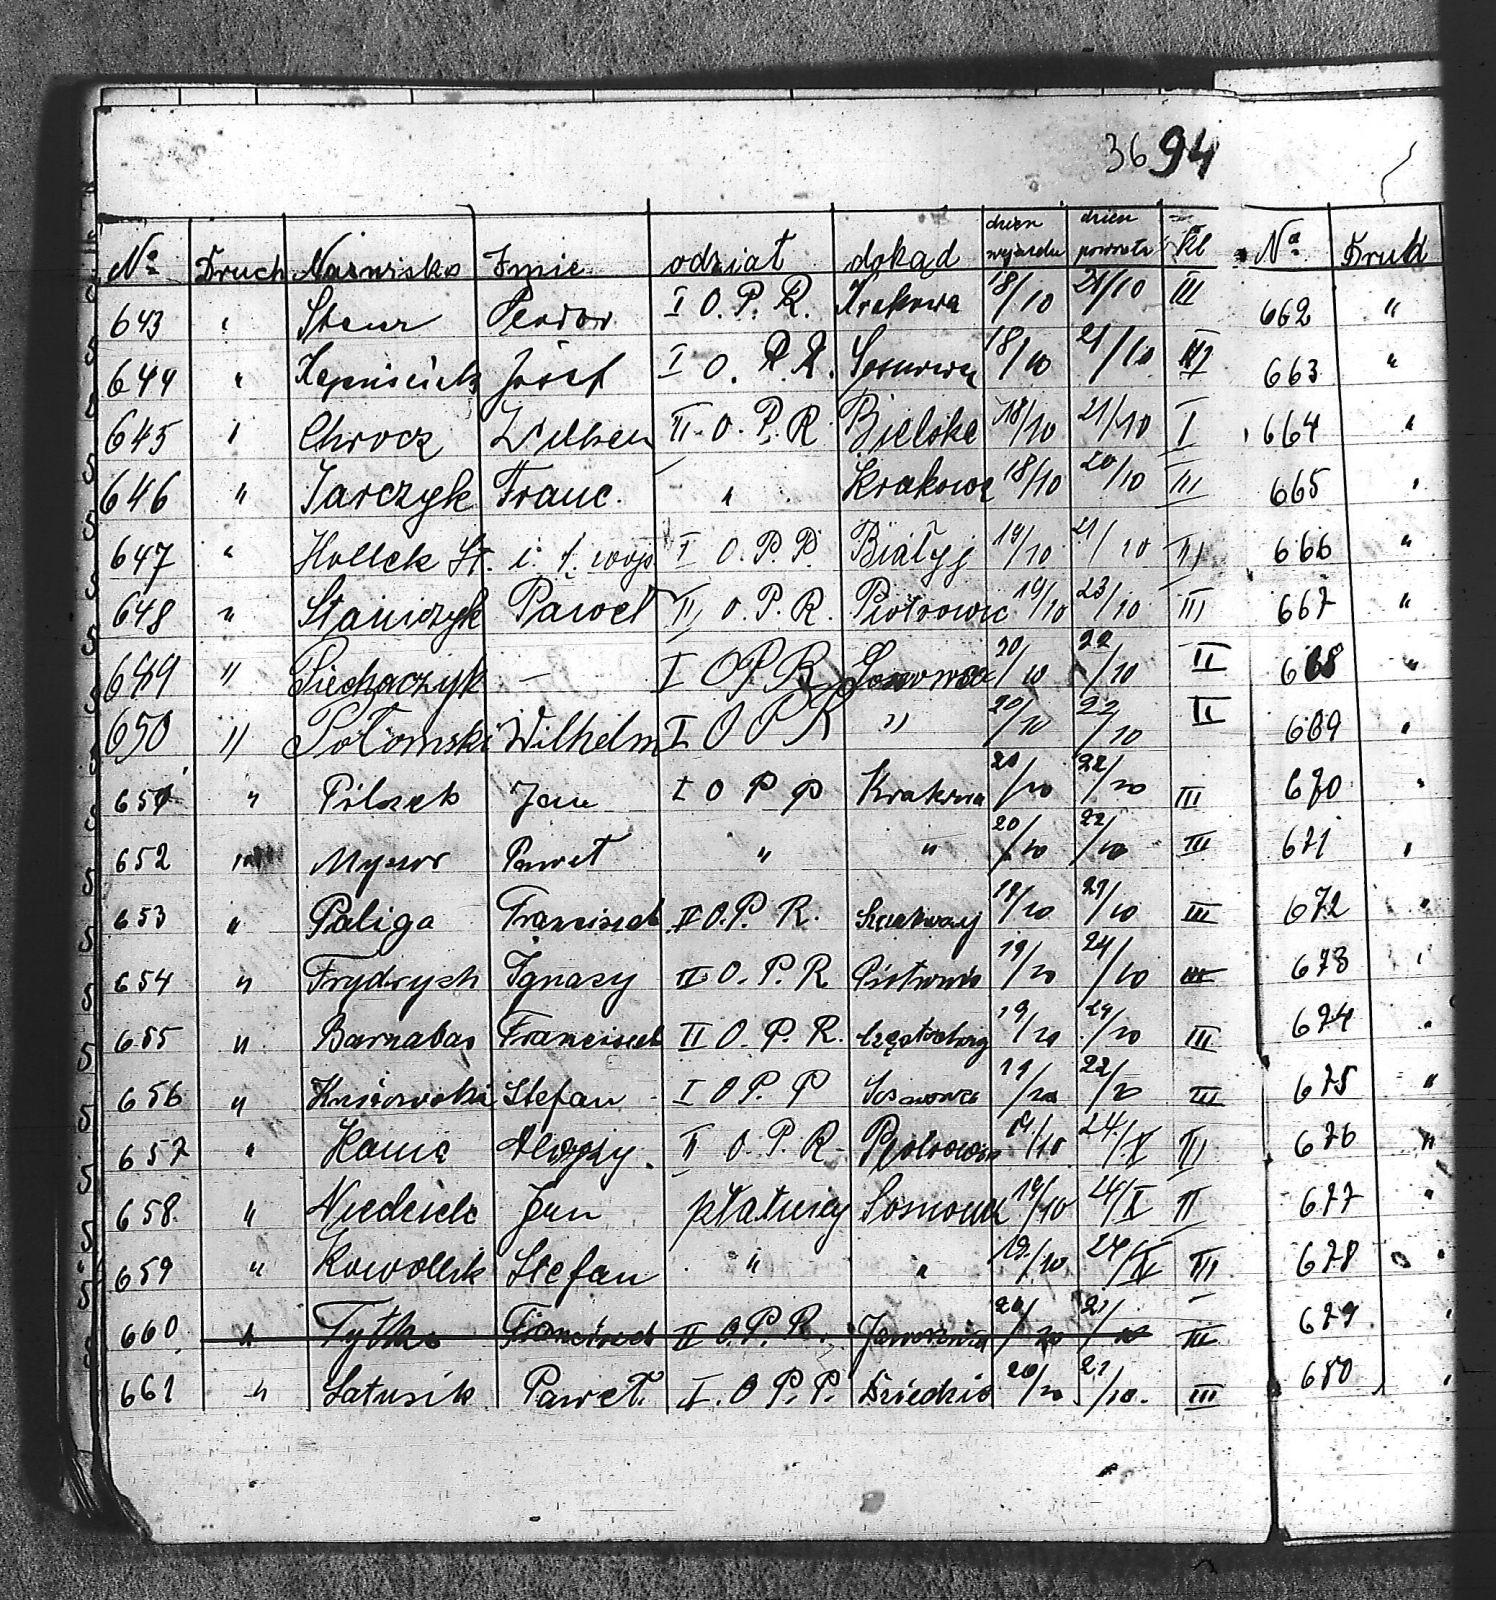 3694
№ Druch Nazwisko Imie odział dokąd dzień wyjazdu dzień powrotu Kl
643 " Stenz Teodor I O.P.R. Krakowa 18/10 21/10 III
644 " Józef I O.P.R. Sosnowca 18/10 21/10 III
645 " Chrocz Wilhelm II O.P.R Bielska 18/10 21/10 I
646 " Jarczyk Franc. " Krakowa 18/10 20/10 III
647 " Hollek St. i. f. wojs I O.P.P. Białyj 19/10 21/10 III
648 " Stańczyk Paweł II O.P.R. Piotrowic 19/10 23/10 III
649 " Piechaczyk — I O P R Sosnowca 20/10 22/10 II
650 " Potomski Wilhelm I O P R " 20/10 22/10 II
651 " Pilszek Jan I O P P Krakowa 20/10 22/10 III
652 " Myzor Paweł " " 20/10 22/10 III
653 " Paliga Franciszek II O.P.R. 19/10 21/10 III
654 " Frydrych Ignacy II O.P.R Piotrowic 19/10 24/10 III
655 " Barnabas Franciszek II O.P.R. Częstochowy 19/10 24/10 III
656 " Stefan I O P. P Sosnowca 19/10 22/10 III
657 " Kania Alojzy. II O.P.R Piotrowic 19/10 24/X III
658 " Niedziela Jan płatniczy Sosnowca 19/10 24/X II
659 " Kowollik Stefan " " 19/10 24/X III
660 " Tytko Franciszek II O.P.R. Jaworzna 20/10 21/10 III
661 " Latusik Paweł. I. O P.P. Dziedzic 20/10 21/10. III
№ Druch
662 "
663 "
664 "
665 "
666 "
667 "
668 "
669 "
670 "
671 "
672 "
673 "
674 "
675 "
676 "
677 "
678 "
679 "
680 "